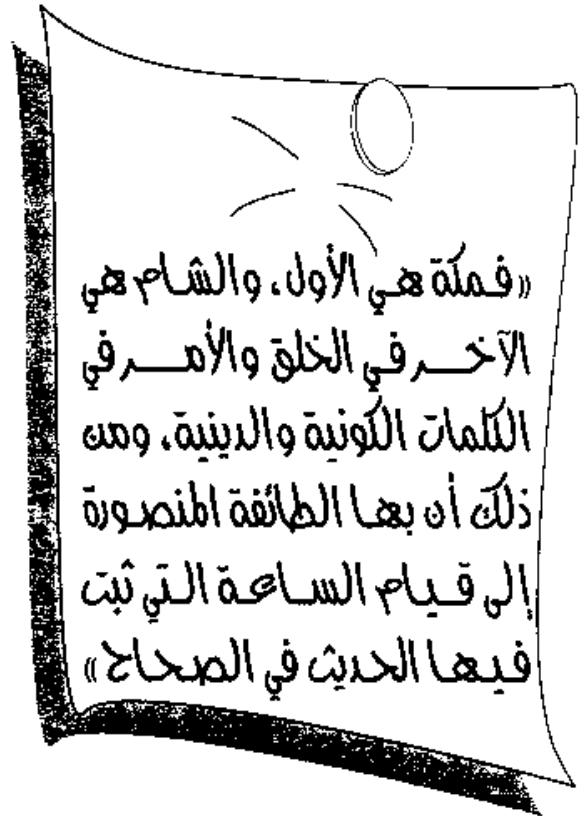 «فمكة هي الأول، والشام هي
الآخر في الخلق والأمر في
الكلمات الكونية والدينية، ومن
ذلك أن بها الطائفة المنصورة
إلى قيام الساعة التي ثبت
فيها الحديث في الصحاح»